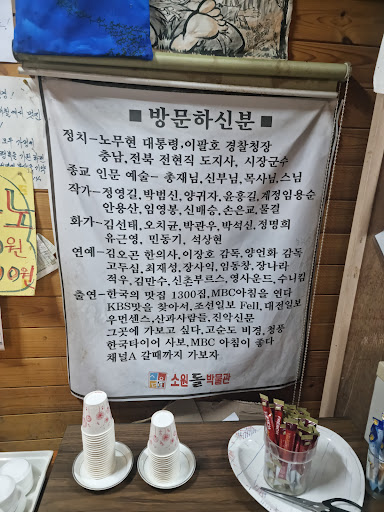 ■ 방문하신분 ■
정치-노무현 대통령,이팔호 경찰청장
충남,전북 전현직 도지사, 시장군수
종교 인문 예술- 총재님,신부님,목사님,스님
작가- 정영길,박범신,양귀자,윤흥길,계정임용순
안용산, 임영봉, 신배승, 손은교,물결
화가- 김선태,오치균,박관우,박석신,정명희
유근영, 민동기, 석상현
연예- 김오곤 한의사,이장호 감독,양언화 감독
고두심, 최재성, 장사익, 임동창, 장나라
적우, 김만수, 신촌부르스, 영사운드, 수니킴
출연-한국의 맛집 1300집,MBC아침을 연다
KBS맛을 찾아서, 조선일보 Fell, 대전일보
우먼센스,산과사람들, 진악신문
그곳에 가보고 싶다. 고순도 비경,청풍
한국타이어 사보, MBC 아침이 좋다
채널A 갈때까지 가보자
소원 돌 박물관
0원